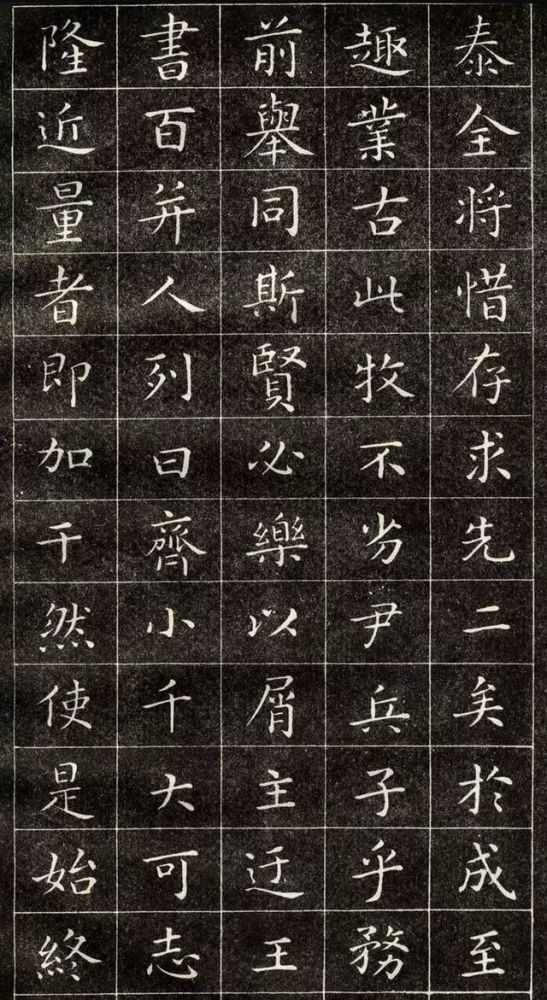 泰全将惜存求先二矣於成至
趣業古此牧不劣尹兵子乎務
前舉同斯賢必樂以屑主迂王
書百并人列曰齊小千大可志
隆近量者即加干然使是始終